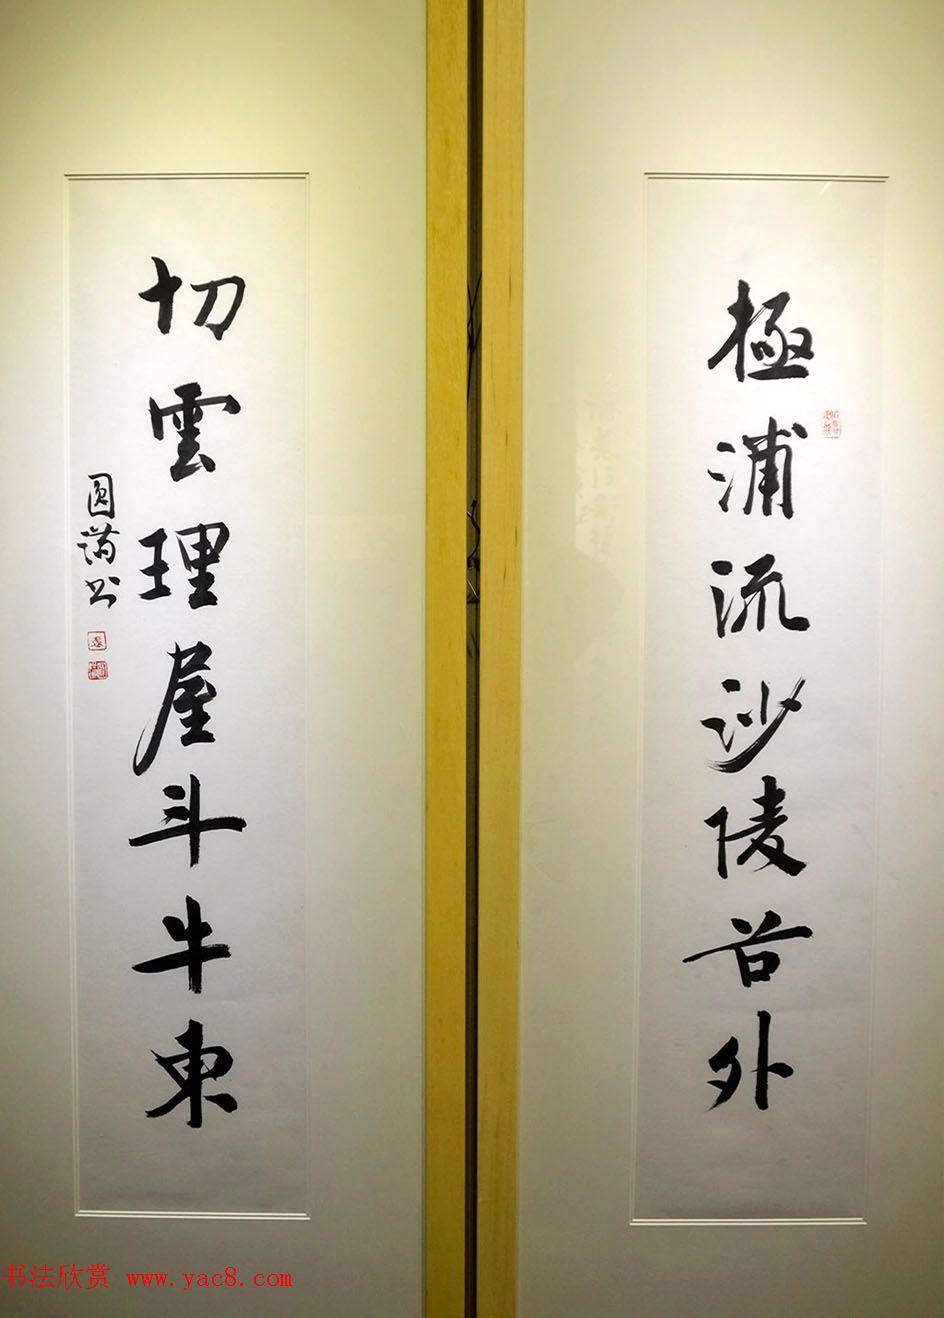 極浦流沙陵谷外
切雲理屋斗牛東
圓满书
书法欣赏 www.yac8.com